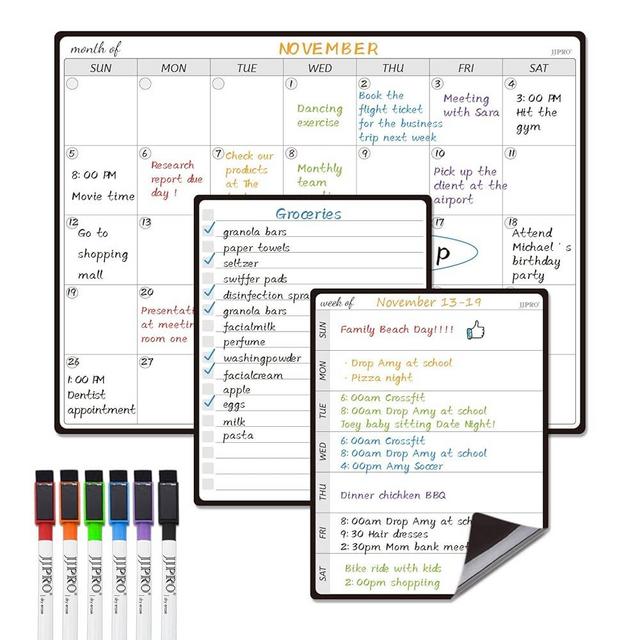 month of
NOVEMBER
JJPRO®
SUN MON TUE WED THU FRI SAT
1 2 3 4
Dancing
exercise
Book the
flight ticket
for the business
trip next week
Meeting
with Sara
3:00 PM
Hit the
gym
5 6 7 8 9 10 11
8:00 PM
Movie time
Research
report due
day !
Check our
products
at The
Monthly
team
Pick up the
client at the
airport
12 13 17 18
Go to
shopping
mall
p
Attend
Michael 's
birthday
party
19 20
at meetin
room one
26 27
1:00 PM
Dentist
appointment
Groceries
granola bars
paper towels
seltzer
swiffer pads
disinfection spra
granola bars
facialmilk
perfume
washingpowder
facialcream
apple
eggs
milk
pasta
week of
November 13-19
JJPRO®
SUN
Family Beach Day!!!!
MON
· Drop Amy at school
· Pizza night
TUE
6:00am Crossfit
8:00am Drop Amy at school
Joey baby sitting Date Night!
WED
6:00am Crossfit
8:00am Drop Amy at school
4:00pm Amy Soccer
THU
Dinner chichken BBQ
FRI
8:00am Drop Amy at sch
9:30 Hair dresses
2:30pm Mom bank meet
SAT
Bike ride with kids
2:00pm shoppting
JJPRO® dry erase
JJPRO® dry erase
JJPRO® dry erase
JJPRO® dry erase
JJPRO® dry erase
JJPRO® dry erase